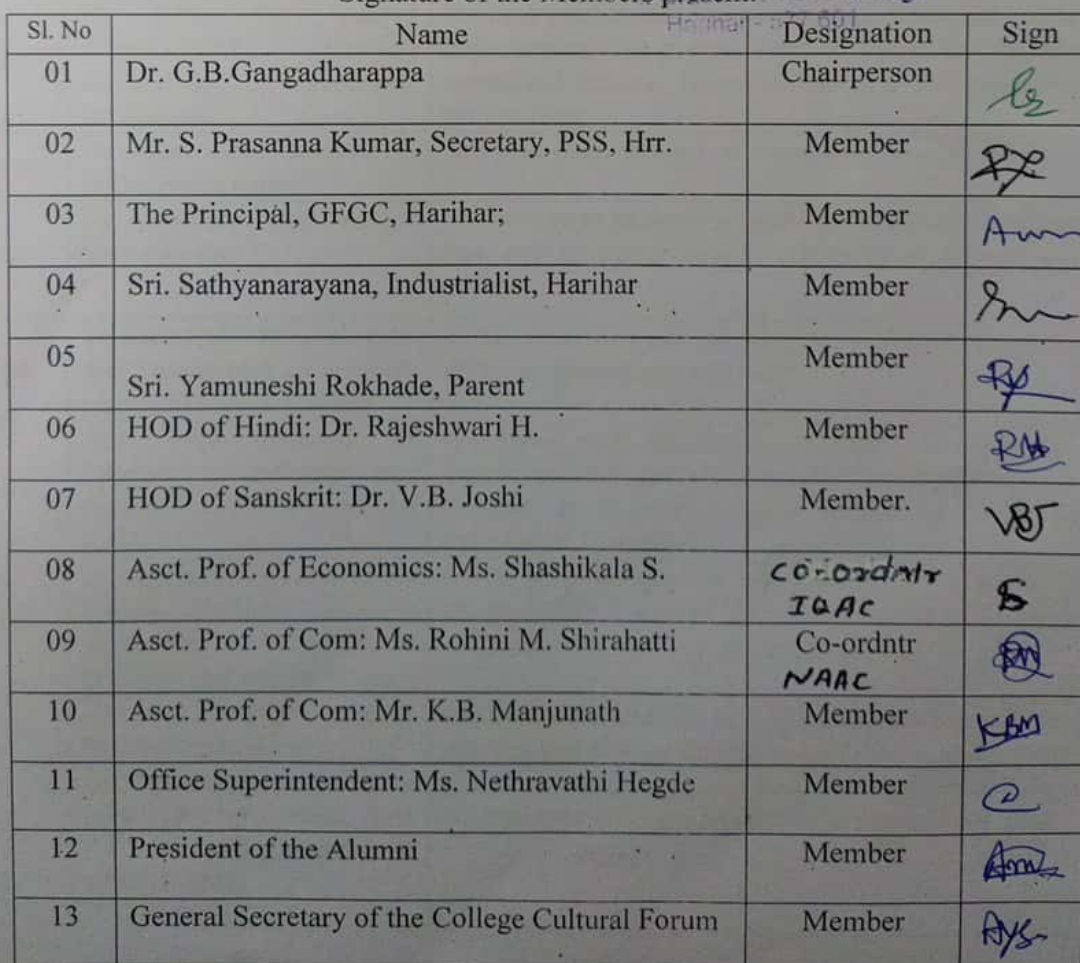 Signature of the Members present
Harihar - 577 601
Sl. No Name Designation Sign
01 Dr. G.B.Gangadharappa Chairperson
02 Mr. S. Prasanna Kumar, Secretary, PSS, Hrr. Member
03 The Principal, GFGC, Harihar; Member
04 Sri. Sathyanarayana, Industrialist, Harihar Member
05 Member
Sri. Yamuneshi Rokhade, Parent
06 HOD of Hindi: Dr. Rajeshwari H. Member
07 HOD of Sanskrit: Dr. V.B. Joshi Member. VBJ
08 Asct. Prof. of Economics: Ms. Shashikala S. Co-ordntr
IQAC
09 Asct. Prof. of Com: Ms. Rohini M. Shirahatti Co-ordntr
NAAC
10 Asct. Prof. of Com: Mr. K.B. Manjunath Member KBM
11 Office Superintendent: Ms. Nethravathi Hegde Member
12 President of the Alumni Member
13 General Secretary of the College Cultural Forum Member